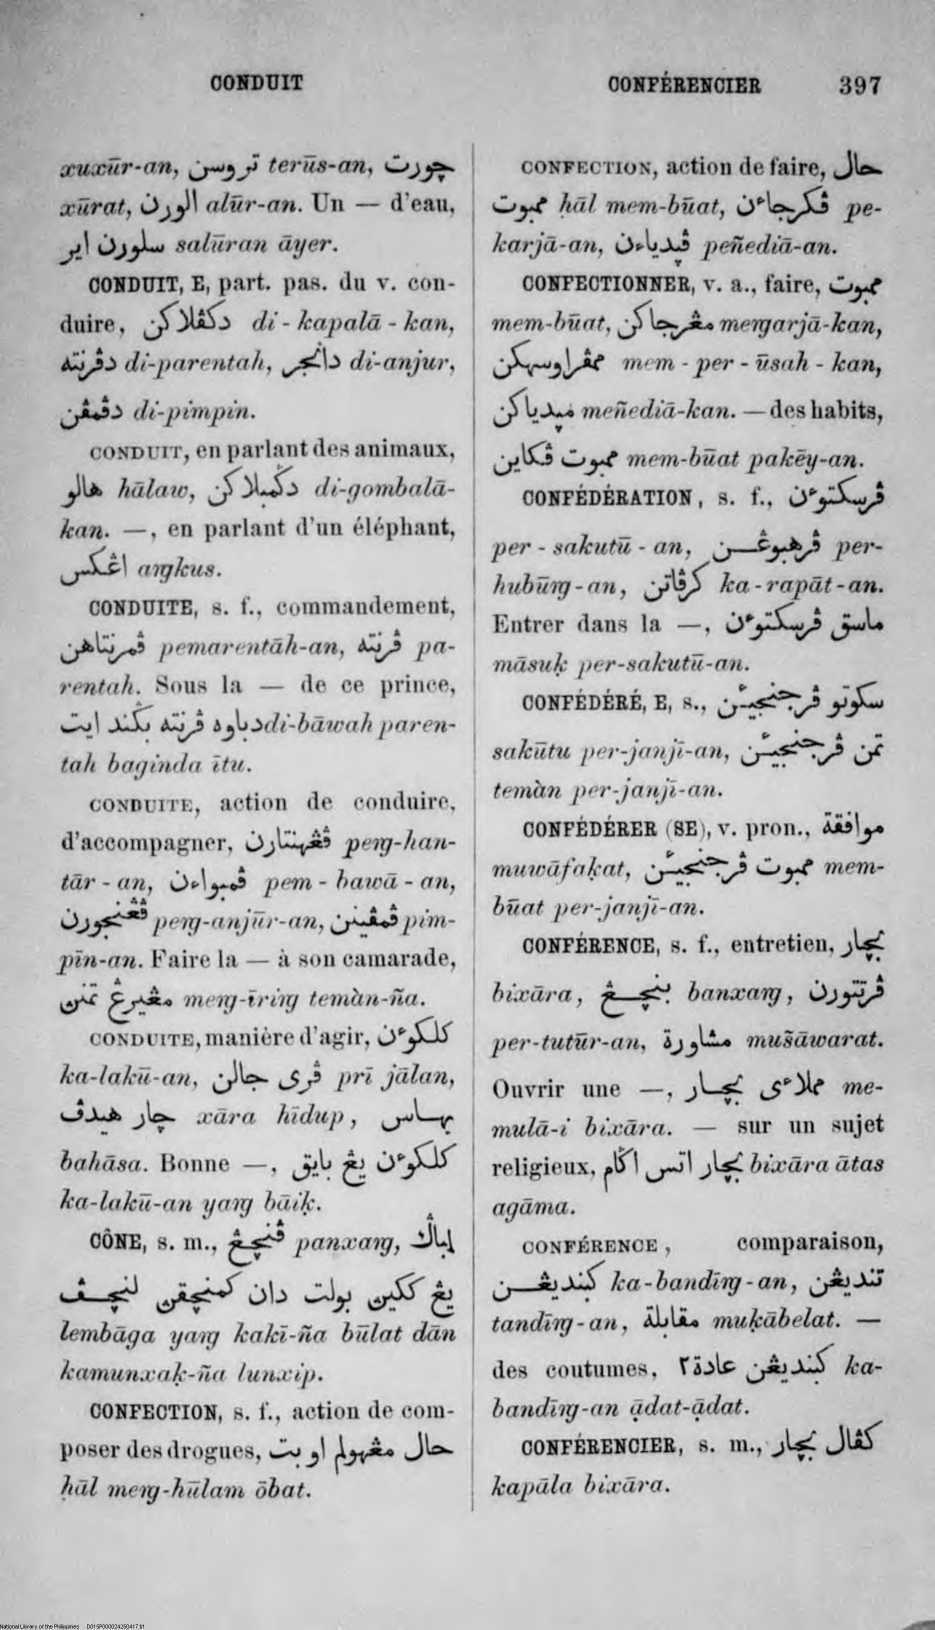 CONDUIT
CONFÉRENCIER 397
xuxūr-an, تروسن terūs-an, چورت
xūrat, الورن alūr-an. Un — d'eau,
سلورن اير salūran āyer.
CONDUIT, E, part. pas. du v. con-
duire, دكڤلاكن di-kapalā-kan,
دڤرنته di-parentah, دانجر di-anjur,
دڤمڤن di-pimpin.
CONDUIT, en parlant des animaux,
هالو hālaw, دكمبلاكن di-gombalā-
kan. —, en parlant d'un éléphant,
اڠكس aŋkus.
CONDUITE, s. f., commandement,
ڤمرنتاهن pemarentāh-an, ڤرنته pa-
rentah. Sous la — de ce prince,
دباوه ڤرنته بڬند ايت di-bāwah paren-
tah baginda ītu.
CONDUITE, action de conduire,
d'accompagner, ڤڠهنتارن peŋ-han-
tār-an, ڤمبواءن pem-bawā-an,
ڤڠنجورن peŋ-anjūr-an, ڤمڤينن pim-
pīn-an. Faire la — à son camarade,
مڠيرڠ تمنن meŋ-īriŋ temàn-ña.
CONDUITE, manière d'agir, كلكوءن
ka-lakū-an, ڤرى جالن prī jālan,
چار هيدڤ xāra hīdup, بهاس
bahāsa. Bonne —, كلكوءن يڠ بايق
ka-lakū-an yaŋ bāiḳ.
CÔNE, s. m., ڤنچڠ panxaŋ, لمباڬ
يڠ ككين بولت دان كمنچقن لنچڤ
lembāga yaŋ kakī-ña būlat dān
kamunxaḳ-ña lunxip.
CONFECTION, s. f., action de com-
poser des drogues, حال مڠهولم اوبت
ḥāl meŋ-hūlam ōbat.
CONFECTION, action de faire, حال
ممبوت ḥāl mem-būat, ڤكرجاءن pe-
karjā-an, ڤپدياءن peñediā-an.
CONFECTIONNER, v. a., faire, ممبوت
mem-būat, مڠرجاكن meŋarjā-kan,
ممڤراوسهكن mem-per-ūsah-kan,
مپدياكن meñediā-kan. — des habits,
ممبوت ڤكاين mem-būat pakēy-an.
CONFÉDÉRATION, s. f., ڤرسكتوءن
per-sakutū-an, ڤرهبوڠن per-
hubūŋ-an, كرڤاتن ka-rapāt-an.
Entrer dans la —, ماسق ڤرسكتوءن
māsuḳ per-sakutū-an.
CONFÉDÉRÉ, E, s., سكوتو ڤرجنجيئن
sakūtu per-janjī-an, تمن ڤرجنجيئن
temàn per-janjī-an.
CONFÉDÉRER (SE), v. pron., موافقة
muwāfaḳat, ممبوت ڤرجنجيئن mem-
būat per-janjī-an.
CONFÉRENCE, s. f., entretien, بچار
bixāra, بنچڠ banxaŋ, ڤرتتورن
per-tutūr-an, مشاورة mušāwarat.
Ouvrir une —, مملاءى بچار me-
mulā-i bixāra. — sur un sujet
religieux, بچار اتس اڬام bixāra ātas
agāma.
CONFÉRENCE, comparaison,
كبنديڠن ka-bandīŋ-an, تنديڠن
tandīŋ-an, مقابلة muḳābelat. —
des coutumes, كبنديڠن عادة٢ ka-
bandīŋ-an ạ̄dat-ạ̄dat.
CONFÉRENCIER, s. m., كڤال بچار
kapāla bixāra.
National Library of the Philippines